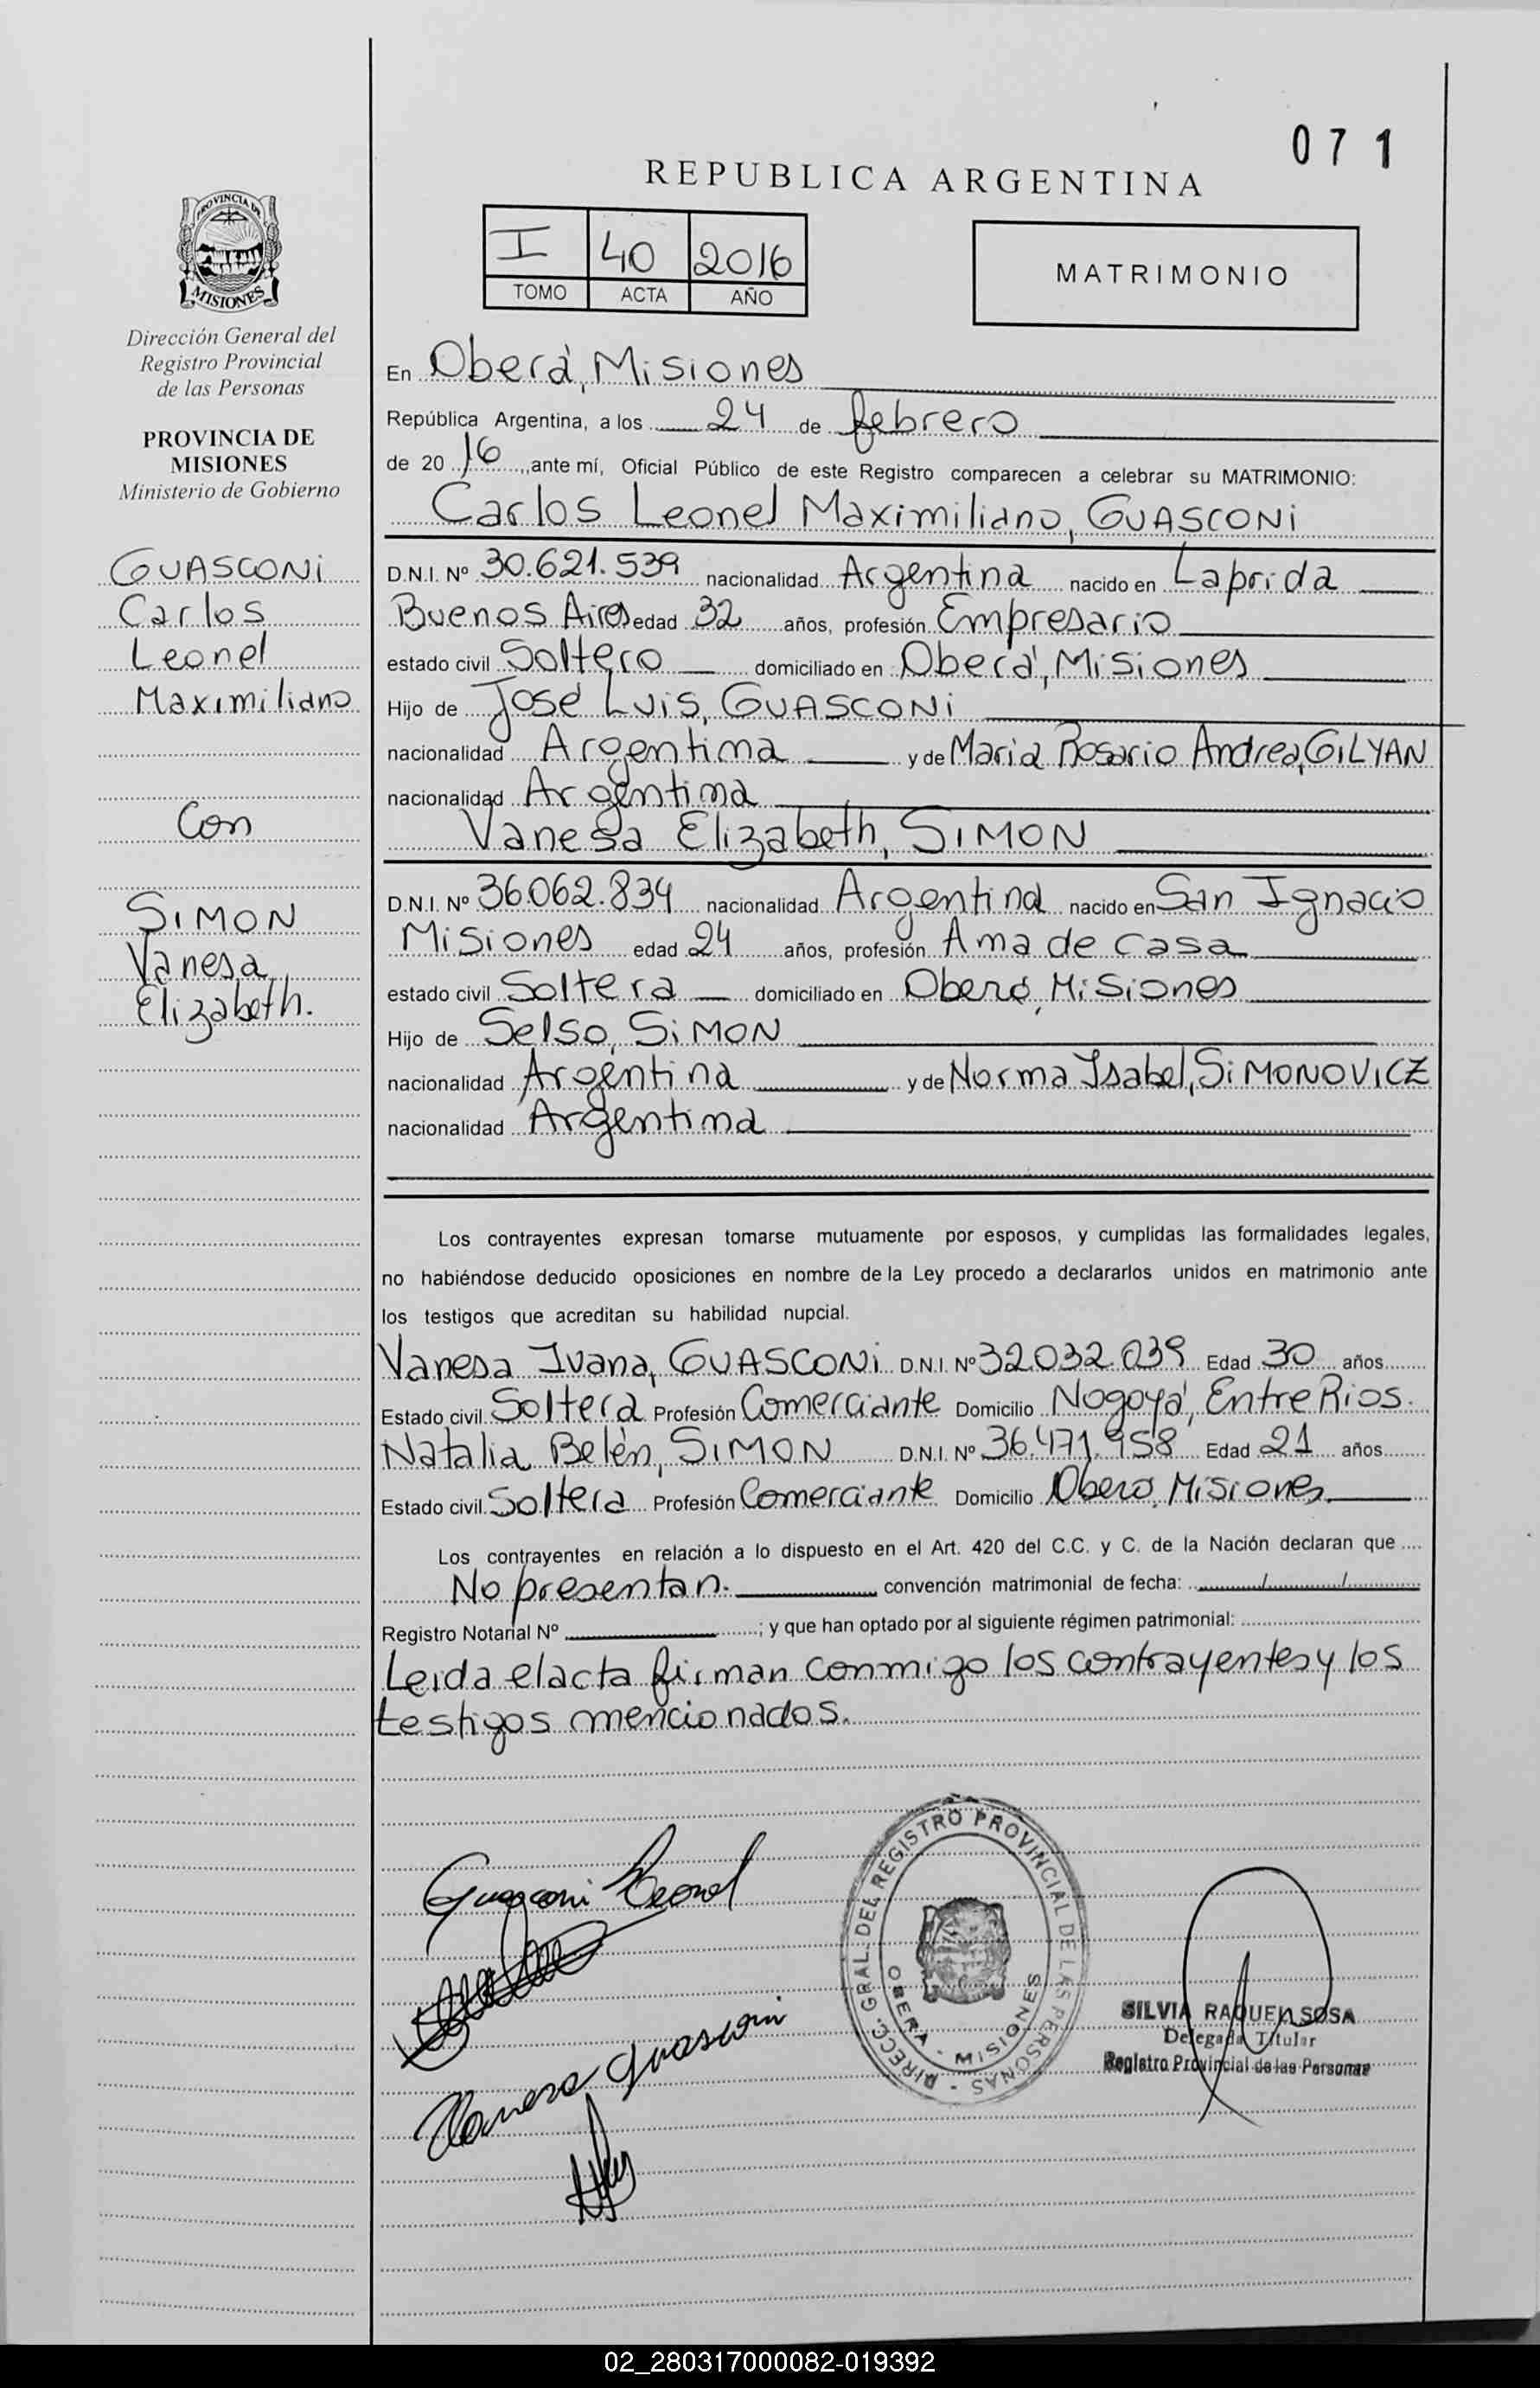 071
REPUBLICA ARGENTINA
I 40 2016
TOMO ACTA AÑO
MATRIMONIO
PROVINCIA DE
MISIONES
Dirección General del
Registro Provincial
de las Personas
PROVINCIA DE
MISIONES
Ministerio de Gobierno
GUASCONi
Carlos
Leonel
Maximiliano
Con
SIMON
Vanesa
Elizabeth.
En Oberá, Misiones
República Argentina, a los 24 de febrero
de 2016, ante mí, Oficial Público de este Registro comparecen a celebrar su MATRIMONIO:
Carlos Leonel Maximiliano, GUASCONi
D.N.I. Nº 30.621.539 nacionalidad Argentina nacido en Laprida
Buenos Aires edad 32 años, profesión Empresario
estado civil Soltero domiciliado en Oberá, Misiones
Hijo de José Luis, GUASCONi
nacionalidad Argentina y de Maria Rosario Andrea, GILYAN
nacionalidad Argentina
Vanesa Elizabeth, SIMON
D.N.I. Nº 36.062.834 nacionalidad Argentina nacido en San Ignacio
Misiones edad 24 años, profesión Ama de casa
estado civil Soltera domiciliado en Oberá, Misiones
Hijo de Selso, SiMON
nacionalidad Argentina y de Norma Isabel, SiMONOVICZ
nacionalidad Argentina
Los contrayentes expresan tomarse mutuamente por esposos, y cumplidas las formalidades legales,
no habiéndose deducido oposiciones en nombre de la Ley procedo a declararlos unidos en matrimonio ante
los testigos que acreditan su habilidad nupcial.
Vanesa Ivana, GUASCONi D.N.I. Nº 32.032.039 Edad 30 años
Estado civil Soltera Profesión Comerciante Domicilio Nogoyá, Entre Rios.
Natalia Belén, SIMON D.N.I. Nº 36.471.958 Edad 21 años
Estado civil Soltera Profesión Comerciante Domicilio Oberá, Misiones
Los contrayentes en relación a lo dispuesto en el Art. 420 del C.C. y C. de la Nación declaran que
No presentan. convención matrimonial de fecha: / /
Registro Notarial Nº ; y que han optado por al siguiente régimen patrimonial:
Leida el acta firman conmigo los contrayentes y los
testigos mencionados.
Guasconi Leonel
Vanesa Guasconi
DIRECC. GRAL. DEL REGISTRO PROVINCIAL DE LAS PERSONAS -
OBERA - MISIONES
SILVIA RAQUEL SOSA
Delegada Titular
Registro Provincial de las Personas
02_280317000082-019392